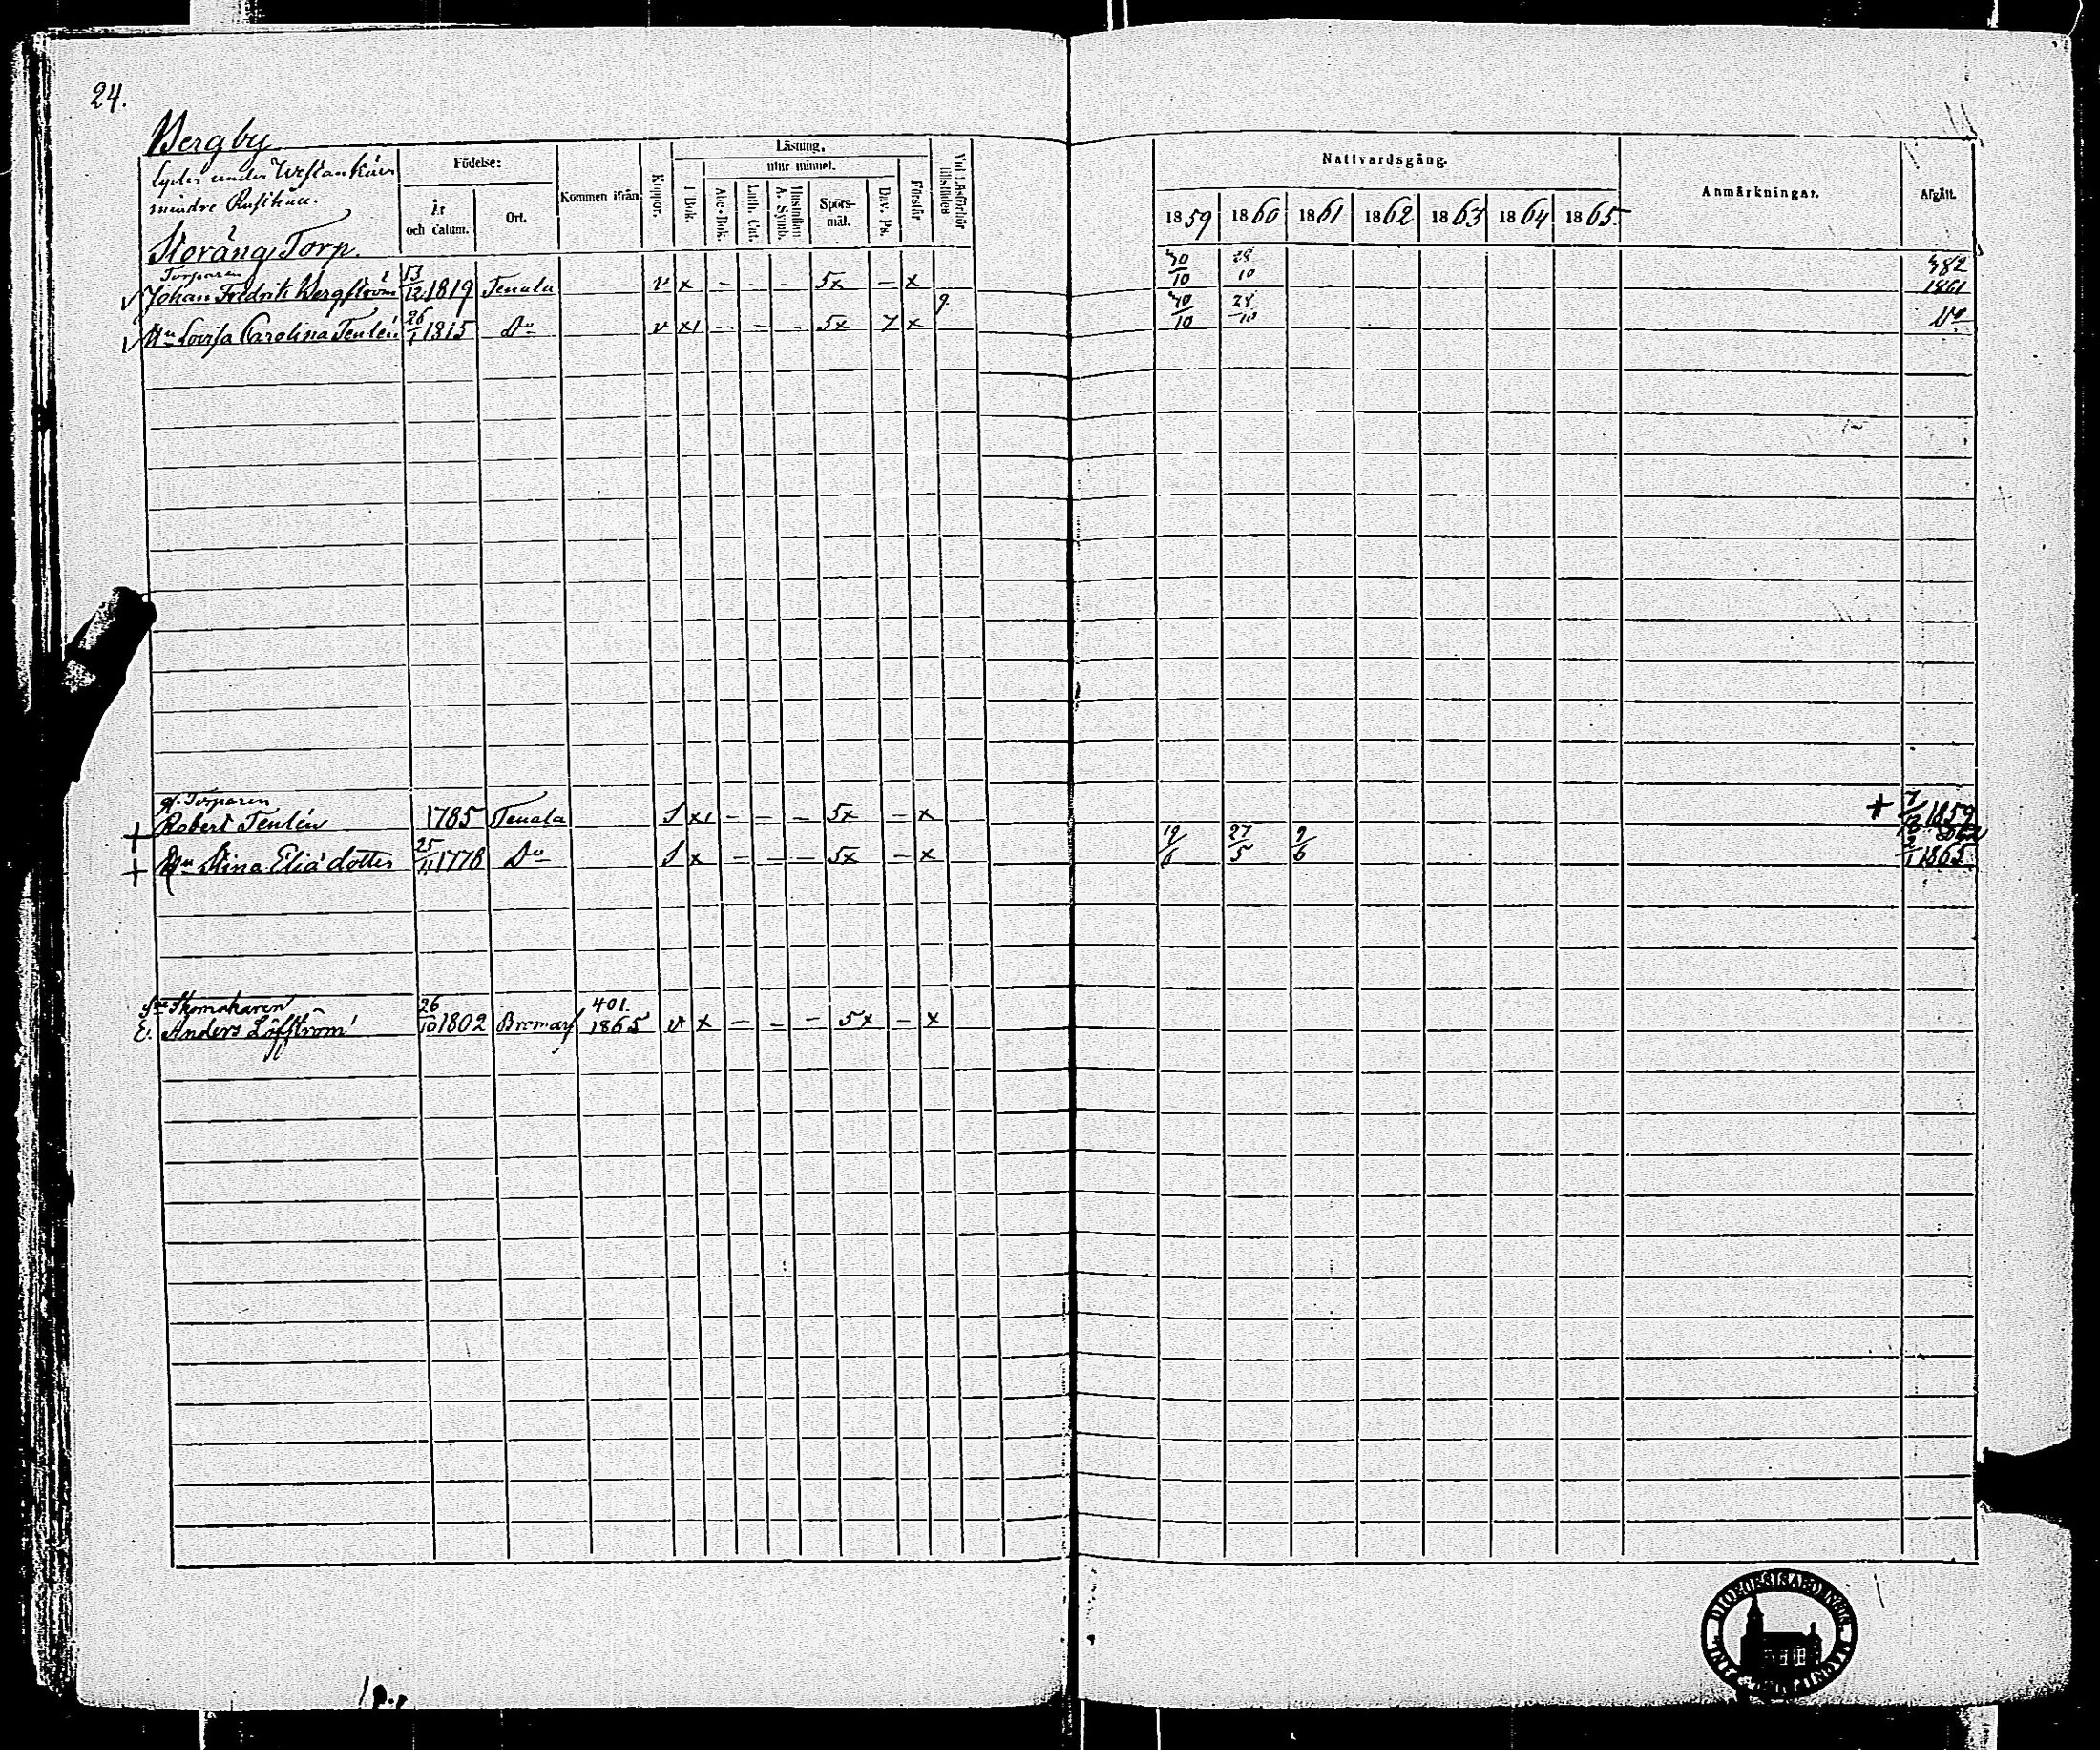 24.
Bergby
lyder under Westankärr
mindre Rusthåll.
Storäng Torp.
Födelse:
År
och datum.
Ort.
Kommen ifrån
Koppor.
Läsning,
utur minnet.
I Bok.
Abc-Bok.
Luth. Cat.
Hustaflan
A. Symb.
Spörs-
mål.
Dav. Ps.
Förstår
Vid Läsförhör
tillstädes
Nattvardsgång.
1859 1860 1861 1862 1863 1864 1865
Anmärkningar.
Afgått.
Torparen
√ Johan Fredrik Bergström 13/12 1819 Tenala v x – – – 5x – x 30/10 28/10 382 1861
√ Hu Lovisa Carolina Tenlén 26/1 1815 Do v x1 – – – 5x 7 x 9. 30/10 28/10 Do
gl. Torparen
+ Robert Tenlén 1785 Tenala S x1 – – – 5x – x + 7/12 1859
+ Hu Stina Eliä dotter 25/11 1778 Do S x – – – 5x – x 19/6 27/5 9/6 2/1 1865
Skomakaren 401.
E. Anders Löfström 26/10 1802 Bromarf 1865 v x – – – 5x – x